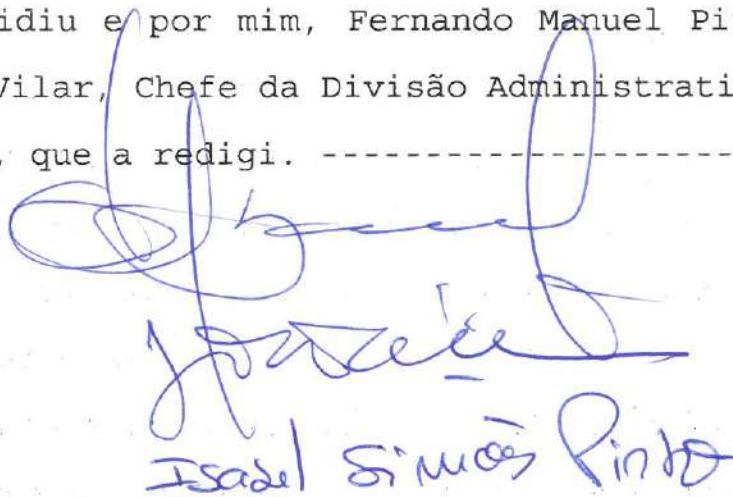 idiu e por mim, Fernando Manuel Pi
Vilar, Chefe da Divisão Administrati
, que a redigi. --------------------
Isabel Simões Pinto